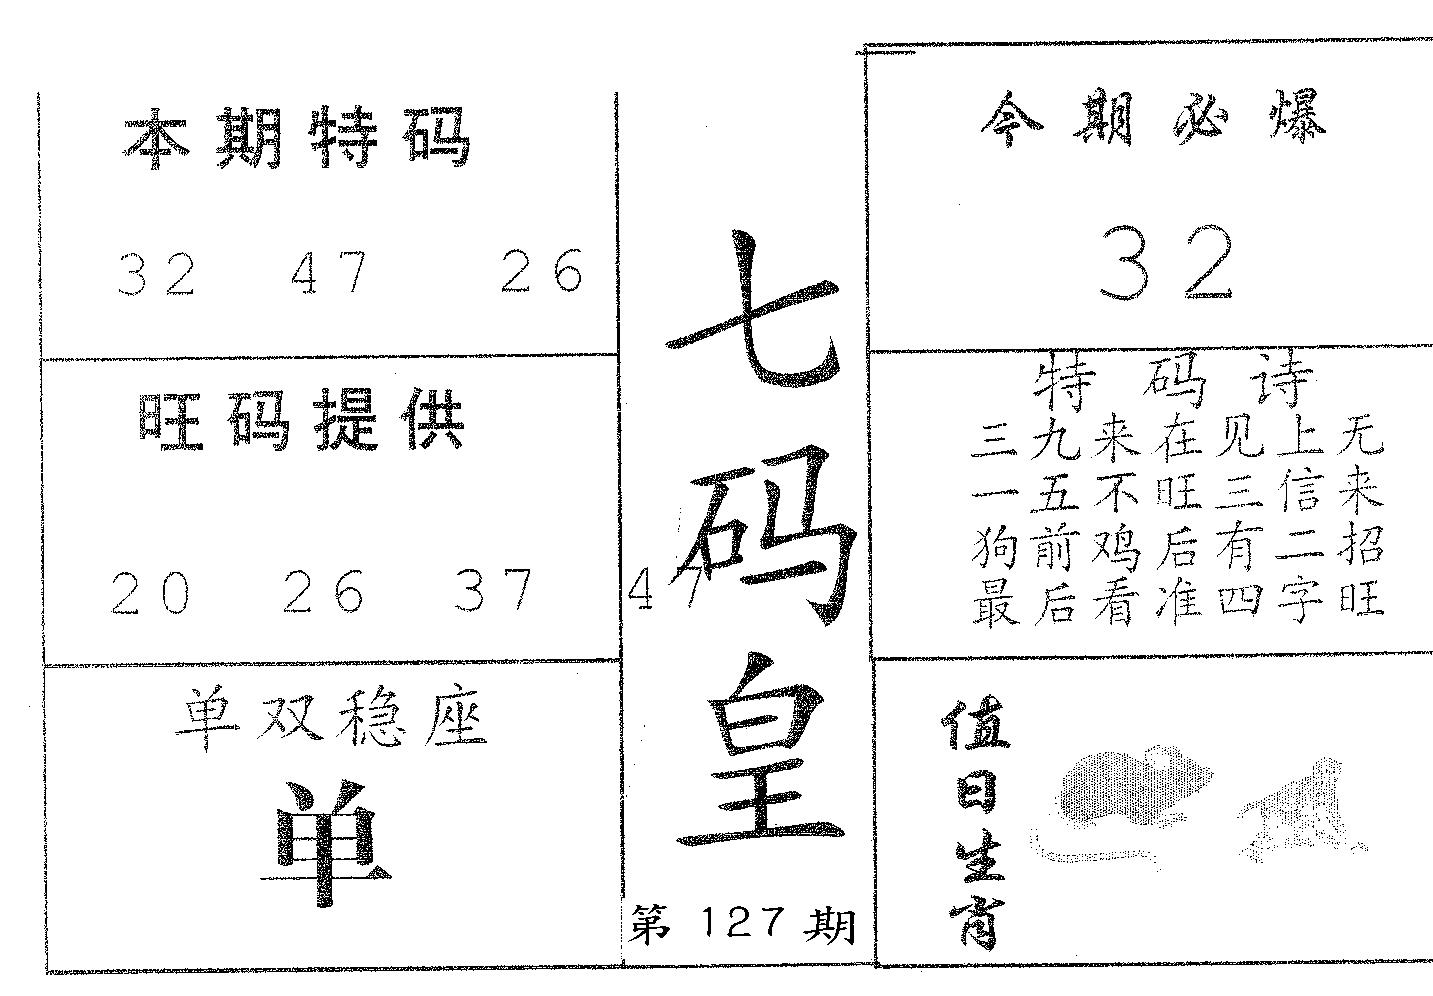 本期特码
32 47 26
旺码提供
20 26 37 47
单双稳座
单
七码皇
第 127 期
今期必爆
32
特码诗
三九来在见上无
一五不旺三信来
狗前鸡后有二招
最后看准四字旺
值日生肖